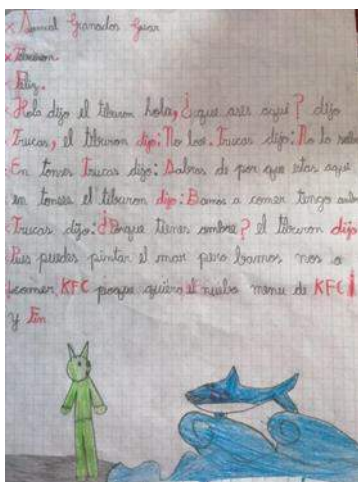 x Samuel Granados Guar
x Tiburon.
Feliz.
Hola dijo el tiburon hola, ¿que ases aqui? dijo
Trucas, el tiburon dijo: No lose. Trucas dijo: No lo
En tonses Trucas dijo: Sabras de por que estas aqui
en tonses el tiburon dijo: Bamos a comer tengo
Trucas dijo: ¿Porque tienes ambre? el tiburon dijo
Pues puedes pintar el mar pero bamos nos a
comer KFC porque quiero el nuebo menu de KFC¡
y Fin